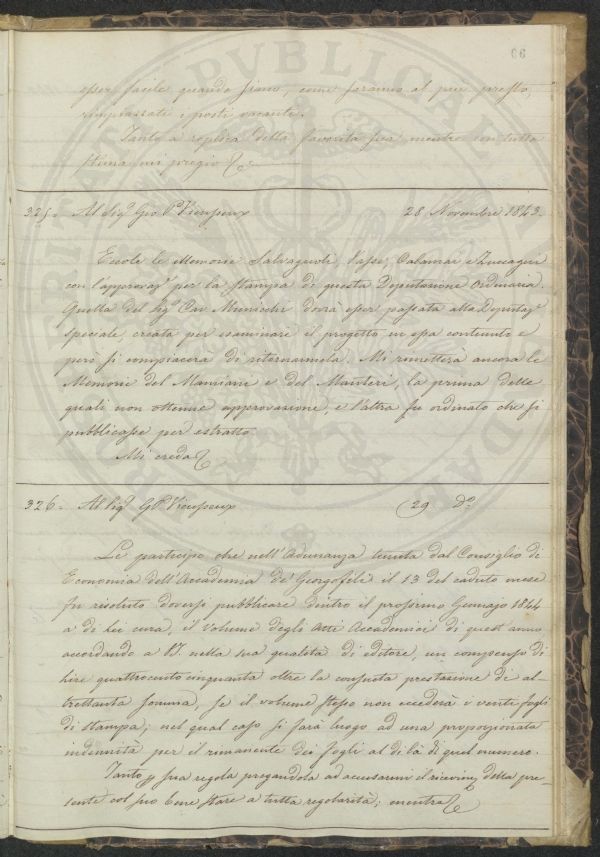 66
esser facile quando siano, come saranno al più presto,
rimpiazzati i posti vacanti.
Tanto a replica della favorita sua mentre con tutta
stima mi pregio
325. Al Sig.r Gio P.º Vieusseux 28 Novembre 1843.
Eccole le Memorie Salvagnoli, Passe, Calamai e Zuccagni
con l'approvaz.e per la stampa di questa Deputazione Ordinaria.
Quella del Sig.r Cav. Municchi dovrà esser passata alla Deputaz.e
speciale creata per esaminare il progetto in essa contenuto e
però si compiacerà di ritornarmela. Mi rimetterà ancora le
Memorie del Mamiani e del Manteri, la prima delle
quali non ottenne approvazione, e l'altra fu ordinato che si
pubblicasse per estratto.
Mi creda
326. Al Sig.r G P.º Vieusseux 29 D.º
Le partecipo che nell'Adunanza tenuta dal Consiglio di
Economia dell'Accademia de' Georgofili il 13 del caduto mese
fu risoluto doversi pubblicare dentro il prossimo Gennajo 1844
a di lei cura, il Volume degli Atti Accademici di quest'anno
accordando a VS. nella sua qualità di editore, un compenso di
Lire quattrocento cinquanta oltre la consueta prestazione di al-
trettanta somma, se il volume stesso non eccederà i venti fogli
di stampa; nel qual caso si farà luogo ad una proporzionata
indennità per il rimanente dei fogli al di là di quel numero.
Tanto p sua regola pregandola ad accusarmi il ricevim.º della pre-
sente col suo bene stare a tutta regolarità; mentre